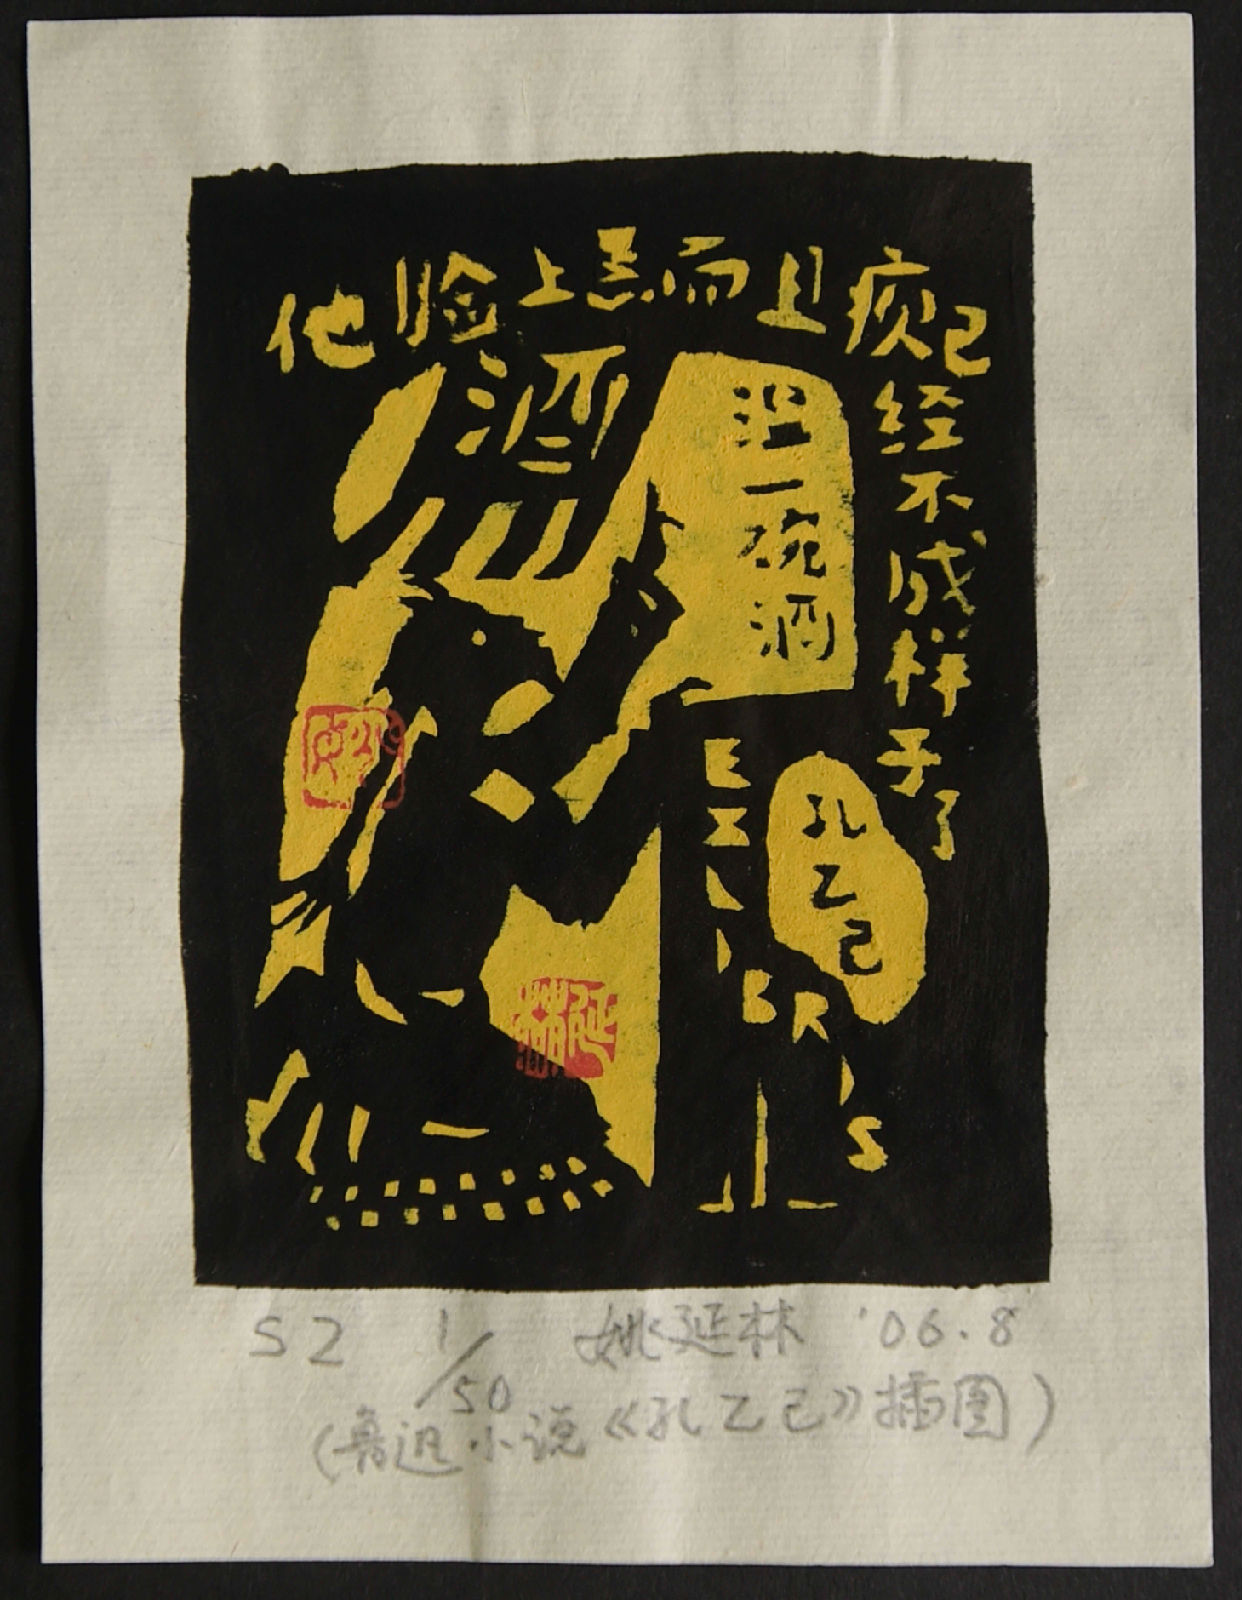 他脸上黑而且瘦已
经不成样子了
酒
温一碗酒
孔乙己
EX LIBRIS
延林
S2 1/50 姚延林 '06.8
(鲁迅小说《孔乙己》插图)